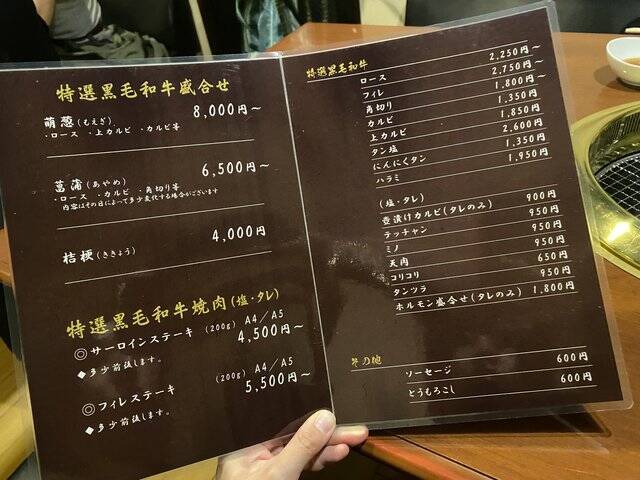 特選黒毛和牛盛合せ
萌葱(もえぎ) 8,000円～
・ロース ・上カルビ ・カルビ等
菖蒲(あやめ) 6,500円～
・ロース ・カルビ ・角切り等
内容はその日によって多少変化する場合がございます
桔梗(ききょう) 4,000円
特選黒毛和牛焼肉(塩・タレ)
◎サーロインステーキ (200g) A4/A5
4,500円～
◆多少前後します。
◎フィレステーキ (200g) A4/A5
5,500円～
◆多少前後します。
特選黒毛和牛
ロース 2,250円～
フィレ 2,750円～
角切り 1,800円～
カルビ 1,350円
上カルビ 1,850円
タン塩 2,600円
にんにくタン 1,350円
ハラミ 1,950円
(塩・タレ)
壺漬けカルビ(タレのみ) 900円
テッチャン 950円
ミノ 950円
天肉 950円
コリコリ 650円
タンツラ 950円
ホルモン盛合せ(タレのみ) 1,800円
その他
ソーセージ 600円
とうもろこし 600円